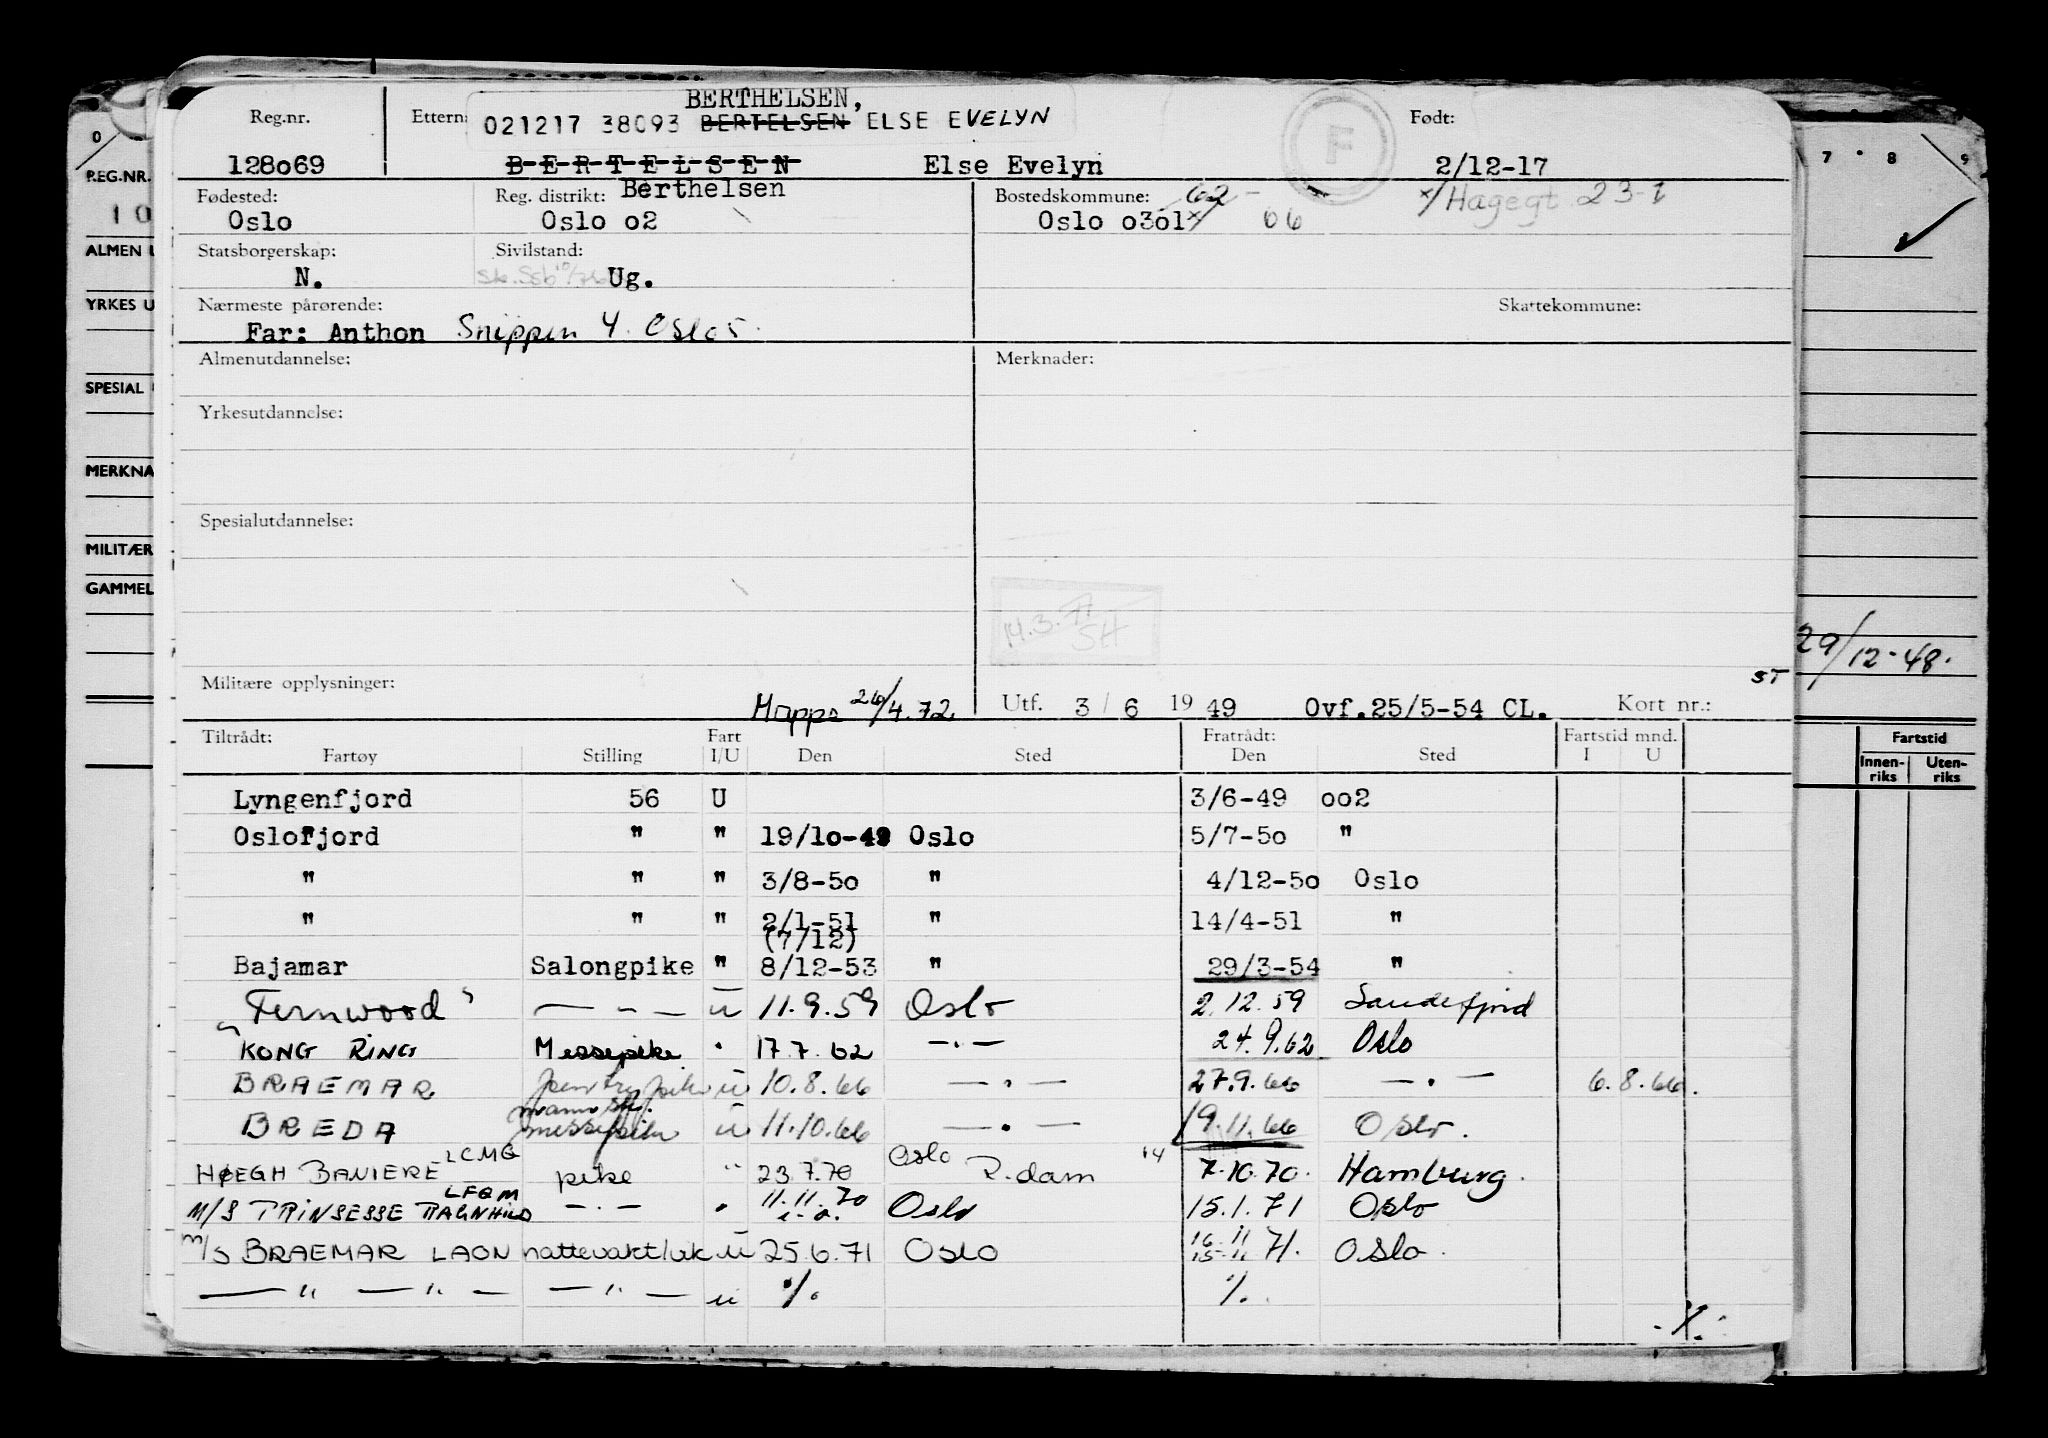 BERTHELSEN,
Reg.nr. Ettern: 021217 38093 BERTELSEN ELSE EVELYN F Født:
128o69 B-E-R-T-E-L-S-E-N Else Evelyn 2/12-17
Fødested: Reg. distrikt: Berthelsen Bostedskommune: 62 x/Hagegt 23-1
Oslo Oslo o2 Oslo o3o1x/ 06
Statsborgerskap: Sivilstand:
N. Ug.
Nærmeste pårørende: Skattekommune:
Far: Anthon Snippen 4. Oslo
Almenutdannelse: Merknader:
Yrkesutdannelse:
Spesialutdannelse:
14.3.71
SH
Militære opplysninger: Mappe 26/4.72 Utf. 3/6 1949 Ovf.25/5-54 CL. Kort nr.: ST
Tiltrådt: Fart Fratrådt: Fartstid mnd.
Fartøy Stilling I/U Den Sted Den Sted I U
Lyngenfjord 56 U 3/6-49 oo2
Oslofjord " " 19/1o-49 Oslo 5/7-5o "
" " " 3/8-5o " 4/12-5o Oslo
" " " 2/1-51 " 14/4-51 "
(7/12)
Bajamar Salongpike " 8/12-53 " 29/3-54 "
"Fernwood" — " — u 11.9.59 Oslo 2.12.59 Sandefjord
KONG RING Messepike " 17.7.62 — " — 24.9.62 Oslo
BRAEMAR pentrypike u 10.8.66 — " — 27.9.66 — " — 6.8.66.
BREDA messepike u 11.10.66 — " — 19.11.66 Oslo.
HØEGH BANIERE LCMG pike " 23.7.70 Oslo R.dam 7.10.70. Hamburg.
M/S PRINSESSE RAGNHILD LFQM — " — " 11.11.70 Oslo 15.1.71 Oslo
M/S BRAEMAR LAON nattevakt/uk u 25.6.71 Oslo 16.11 15.11 71. Oslo.
— " — " — — " — u ./. ./.
./.
0 7 8 9
REG.NR.
10
ALMEN U
YRKES U
SPESIAL
MERKNA
MILITÆR
GAMMEL
29/12-48.
Fartstid
Innen-riks Uten-riks